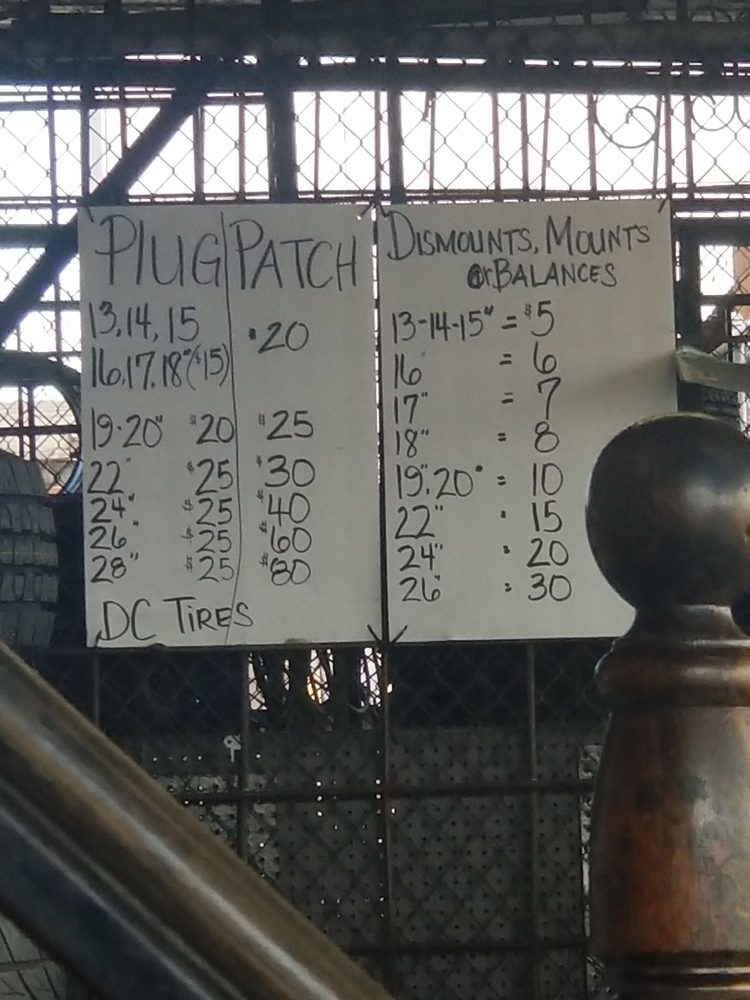 PLUG PATCH
13,14,15 $20
16.17.18" ($15)
19-20" $20 $25
22" $25 $30
24" $25 $40
26" $25 $60
28" $25 $80
DC TIRES
DISMOUNTS, MOUNTS
or BALANCES
13-14-15" = $5
16" = 6
17" = 7
18" = 8
19". 20" = 10
22" = 15
24" = 20
26" = 30